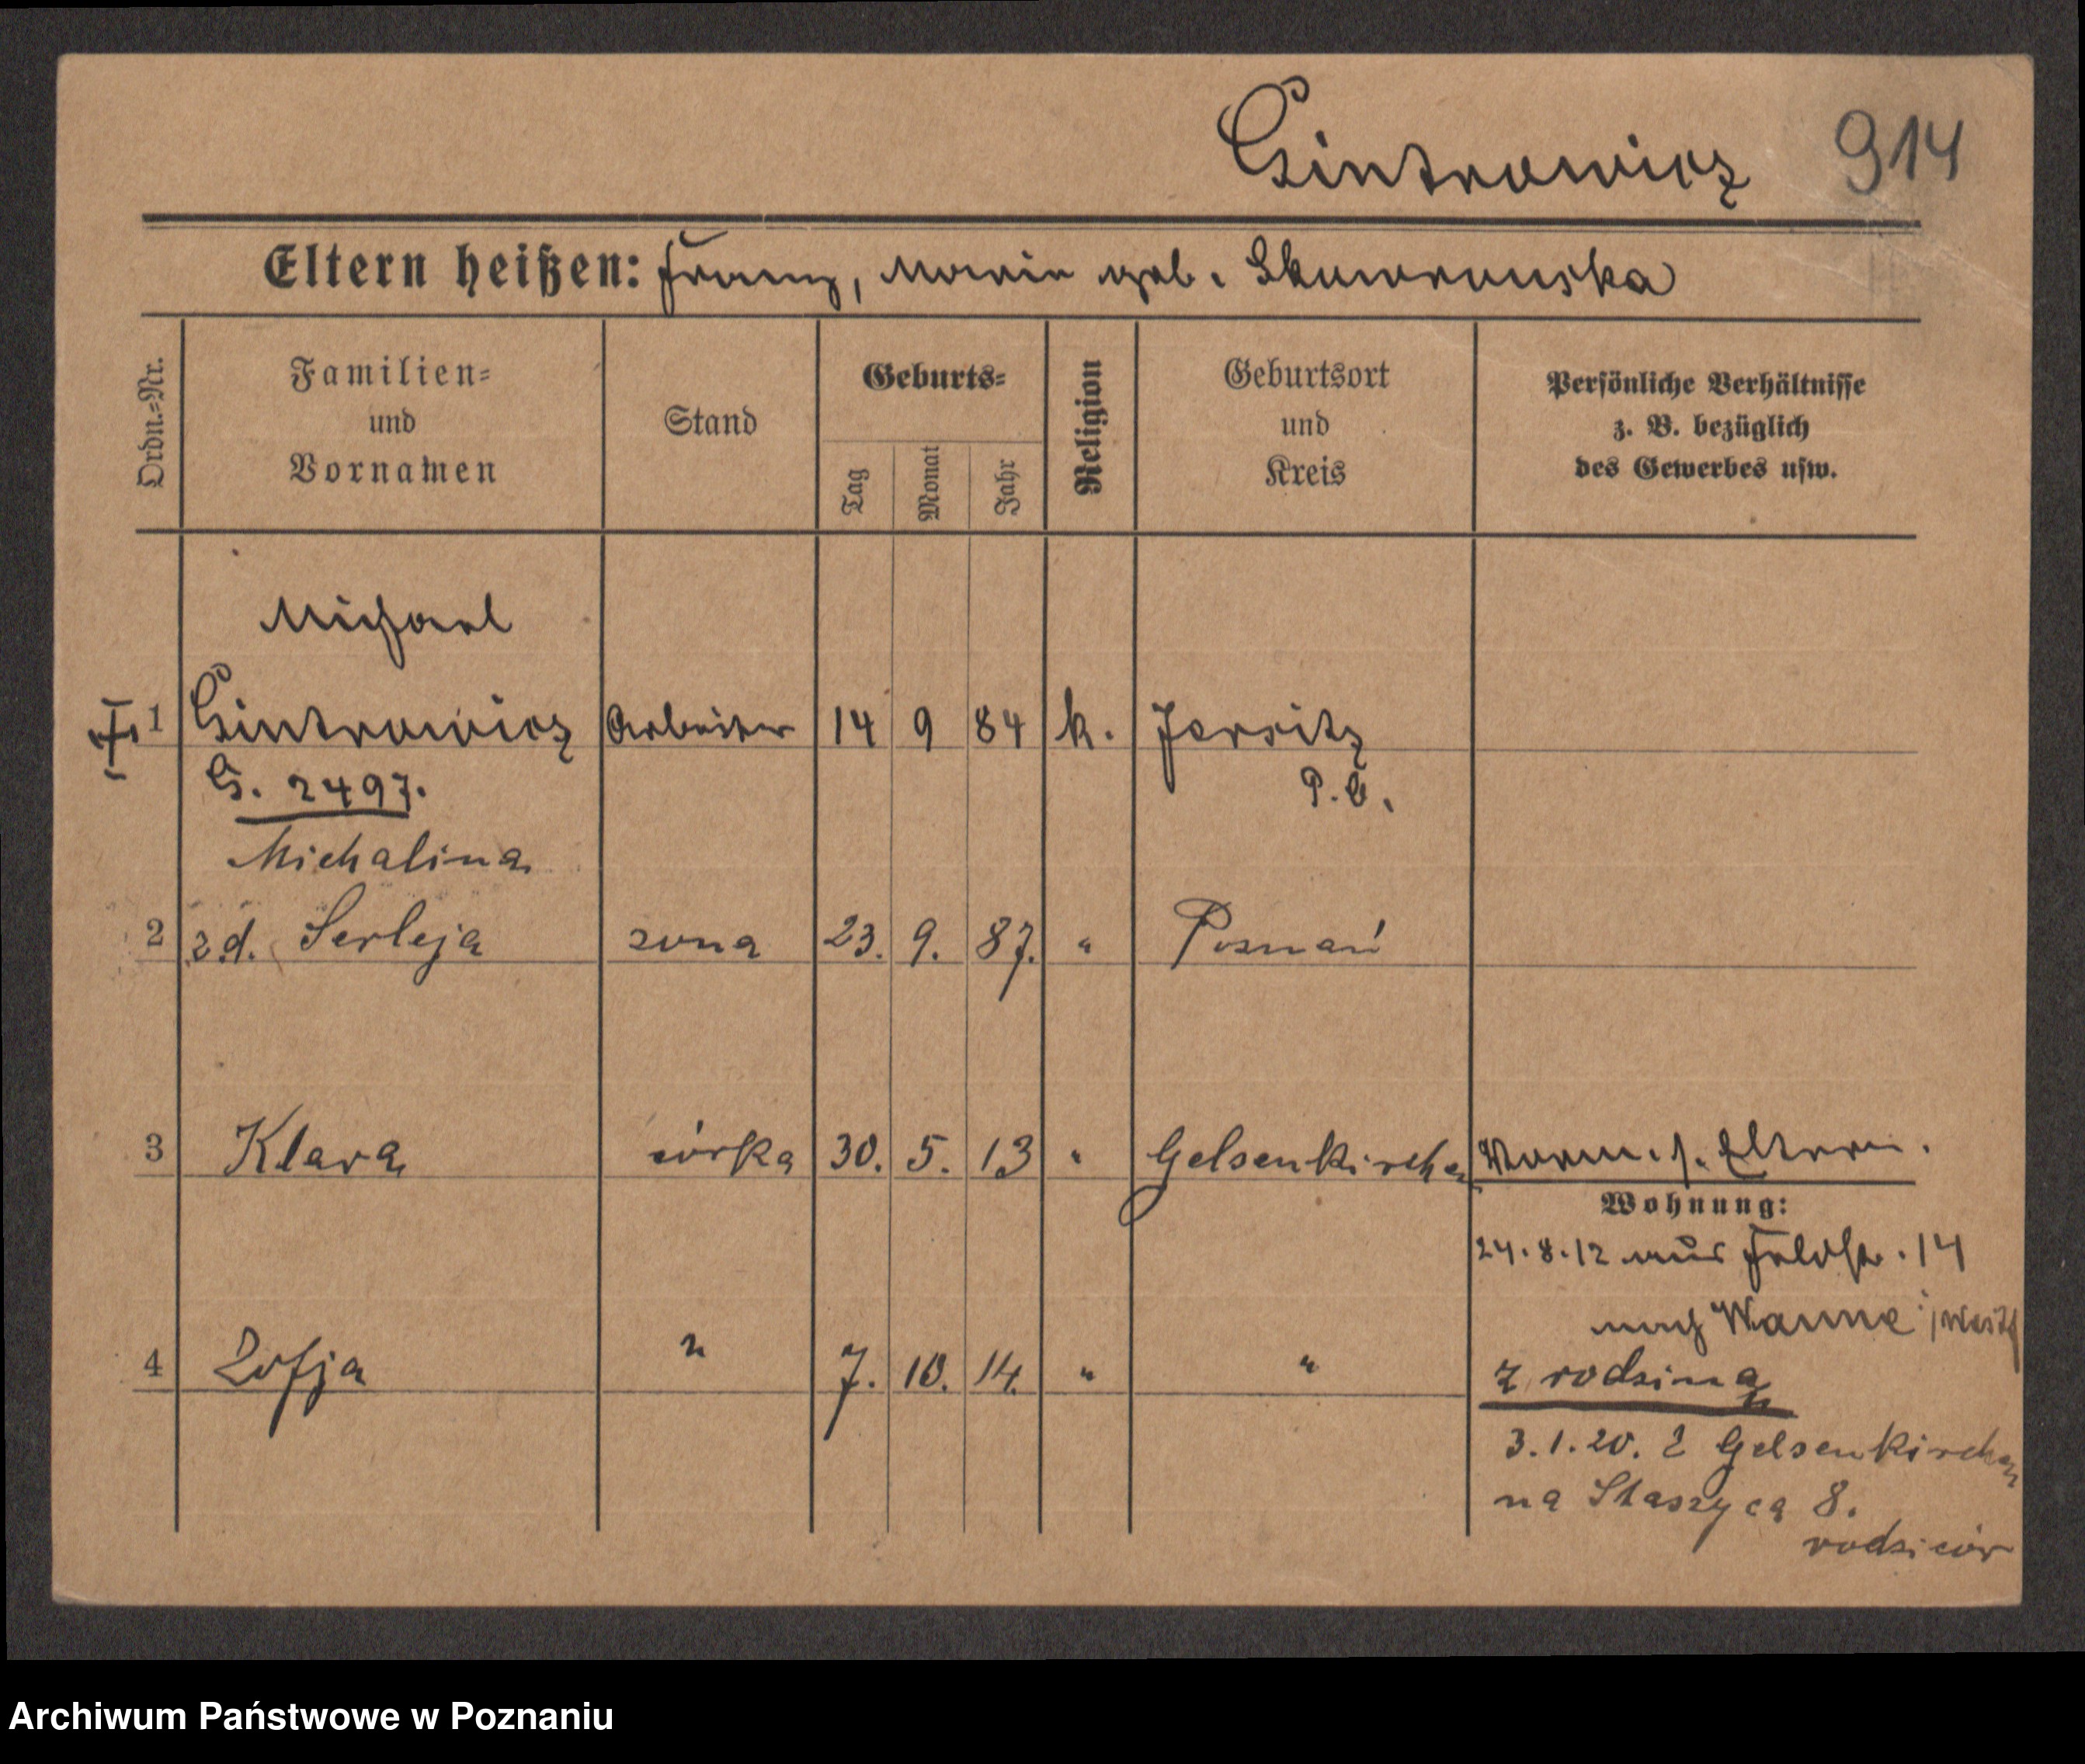 Cintrowicz 914
Eltern heißen: Franz, Maria geb. Skowronska
Ordn.=Nr.
Familien=
und
Vornamen
Stand
Geburts=
Tag
Monat
Jahr
Religion
Geburtsort
und
Kreis
Persönliche Verhältnisse
z. B. bezüglich
des Gewerbes usw.
Michael
1 Cintrowicz Arbeiter 14 9 84 k. Jersitz
G. 2497. P. O.
Michalina
2 z d. Serleja zona 23. 9. 87. " Poznań
3 Klara córka 30. 5. 13 " Gelsenkirchen Worm. s. Eltern.
Wohnung:
24.8.12 aus Feldstr. 14
nach Wanne i/Westf
4 Zofja " 7. 10. 14. " " z rodziną
3.1.20. z Gelsenkirchen
na Staszyca 8.
rodziców
Archiwum Państwowe w Poznaniu